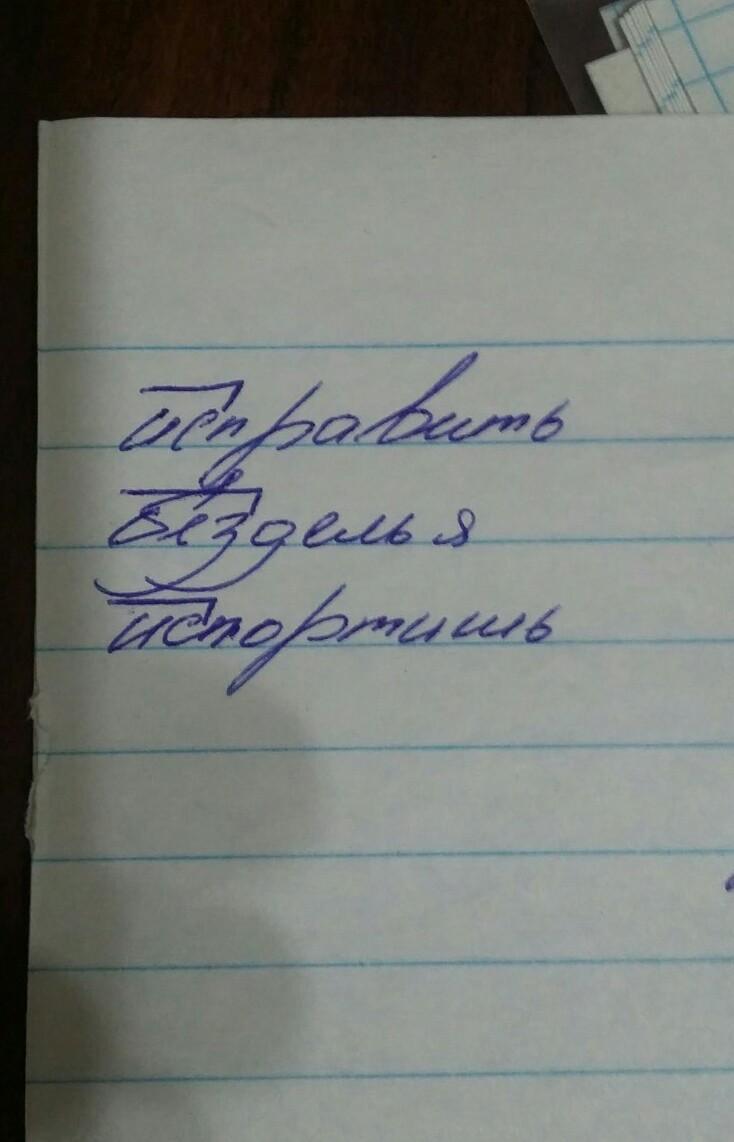 исправить
безделья
испортишь